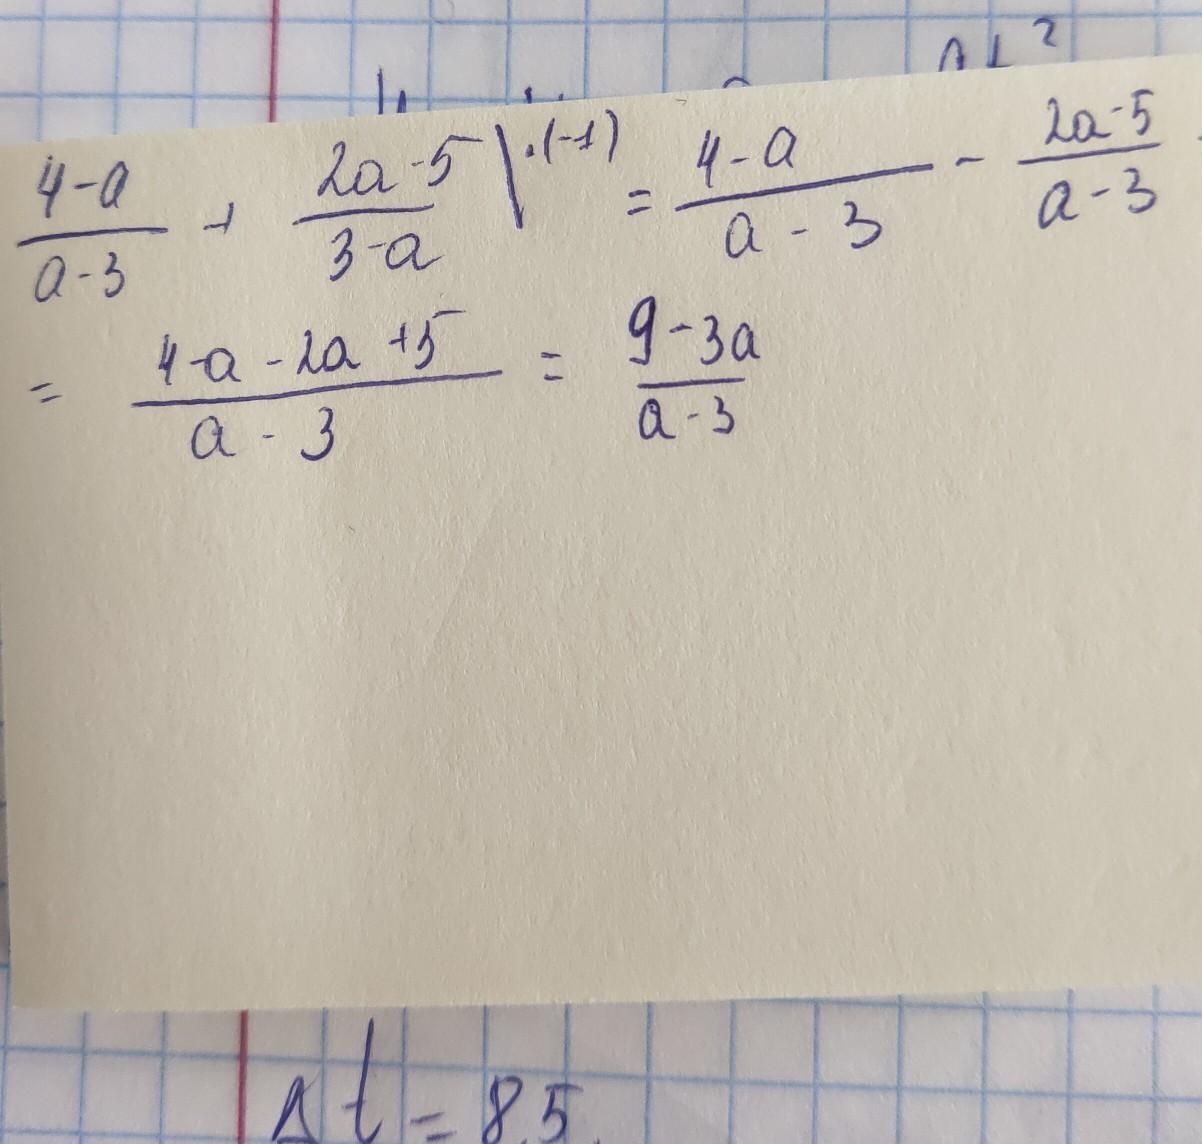 (4-a)/(a-3) + (2a-5)/(3-a) \·(-1) = (4-a)/(a-3) - (2a-5)/(a-3)
= (4-a-2a+5)/(a-3) = (9-3a)/(a-3)
Δt = 8.5